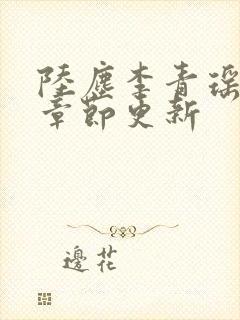 陸塵李青瑶
章節更新
邊花